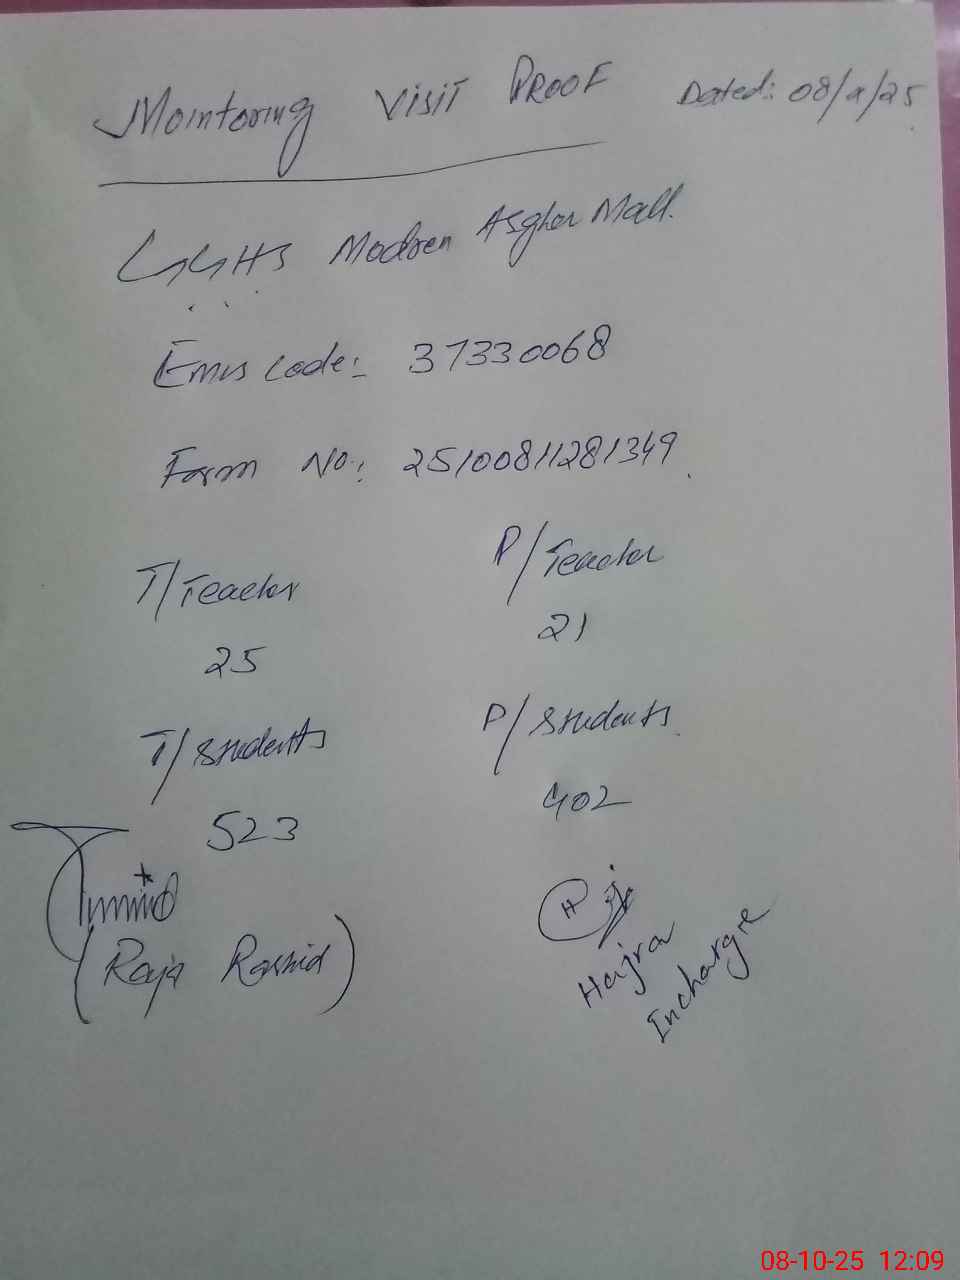 Mointoring Visit PROOF Dated: 08/x/25
GGHS Modren Asghar Mall.
Emis code:- 37330068
Form No.: 25100811281349
T/Teacher P/Teacher
25 21
T/Students P/Students
523 402
(Raja Rashid)
Hajra
Incharge
08-10-25 12:09